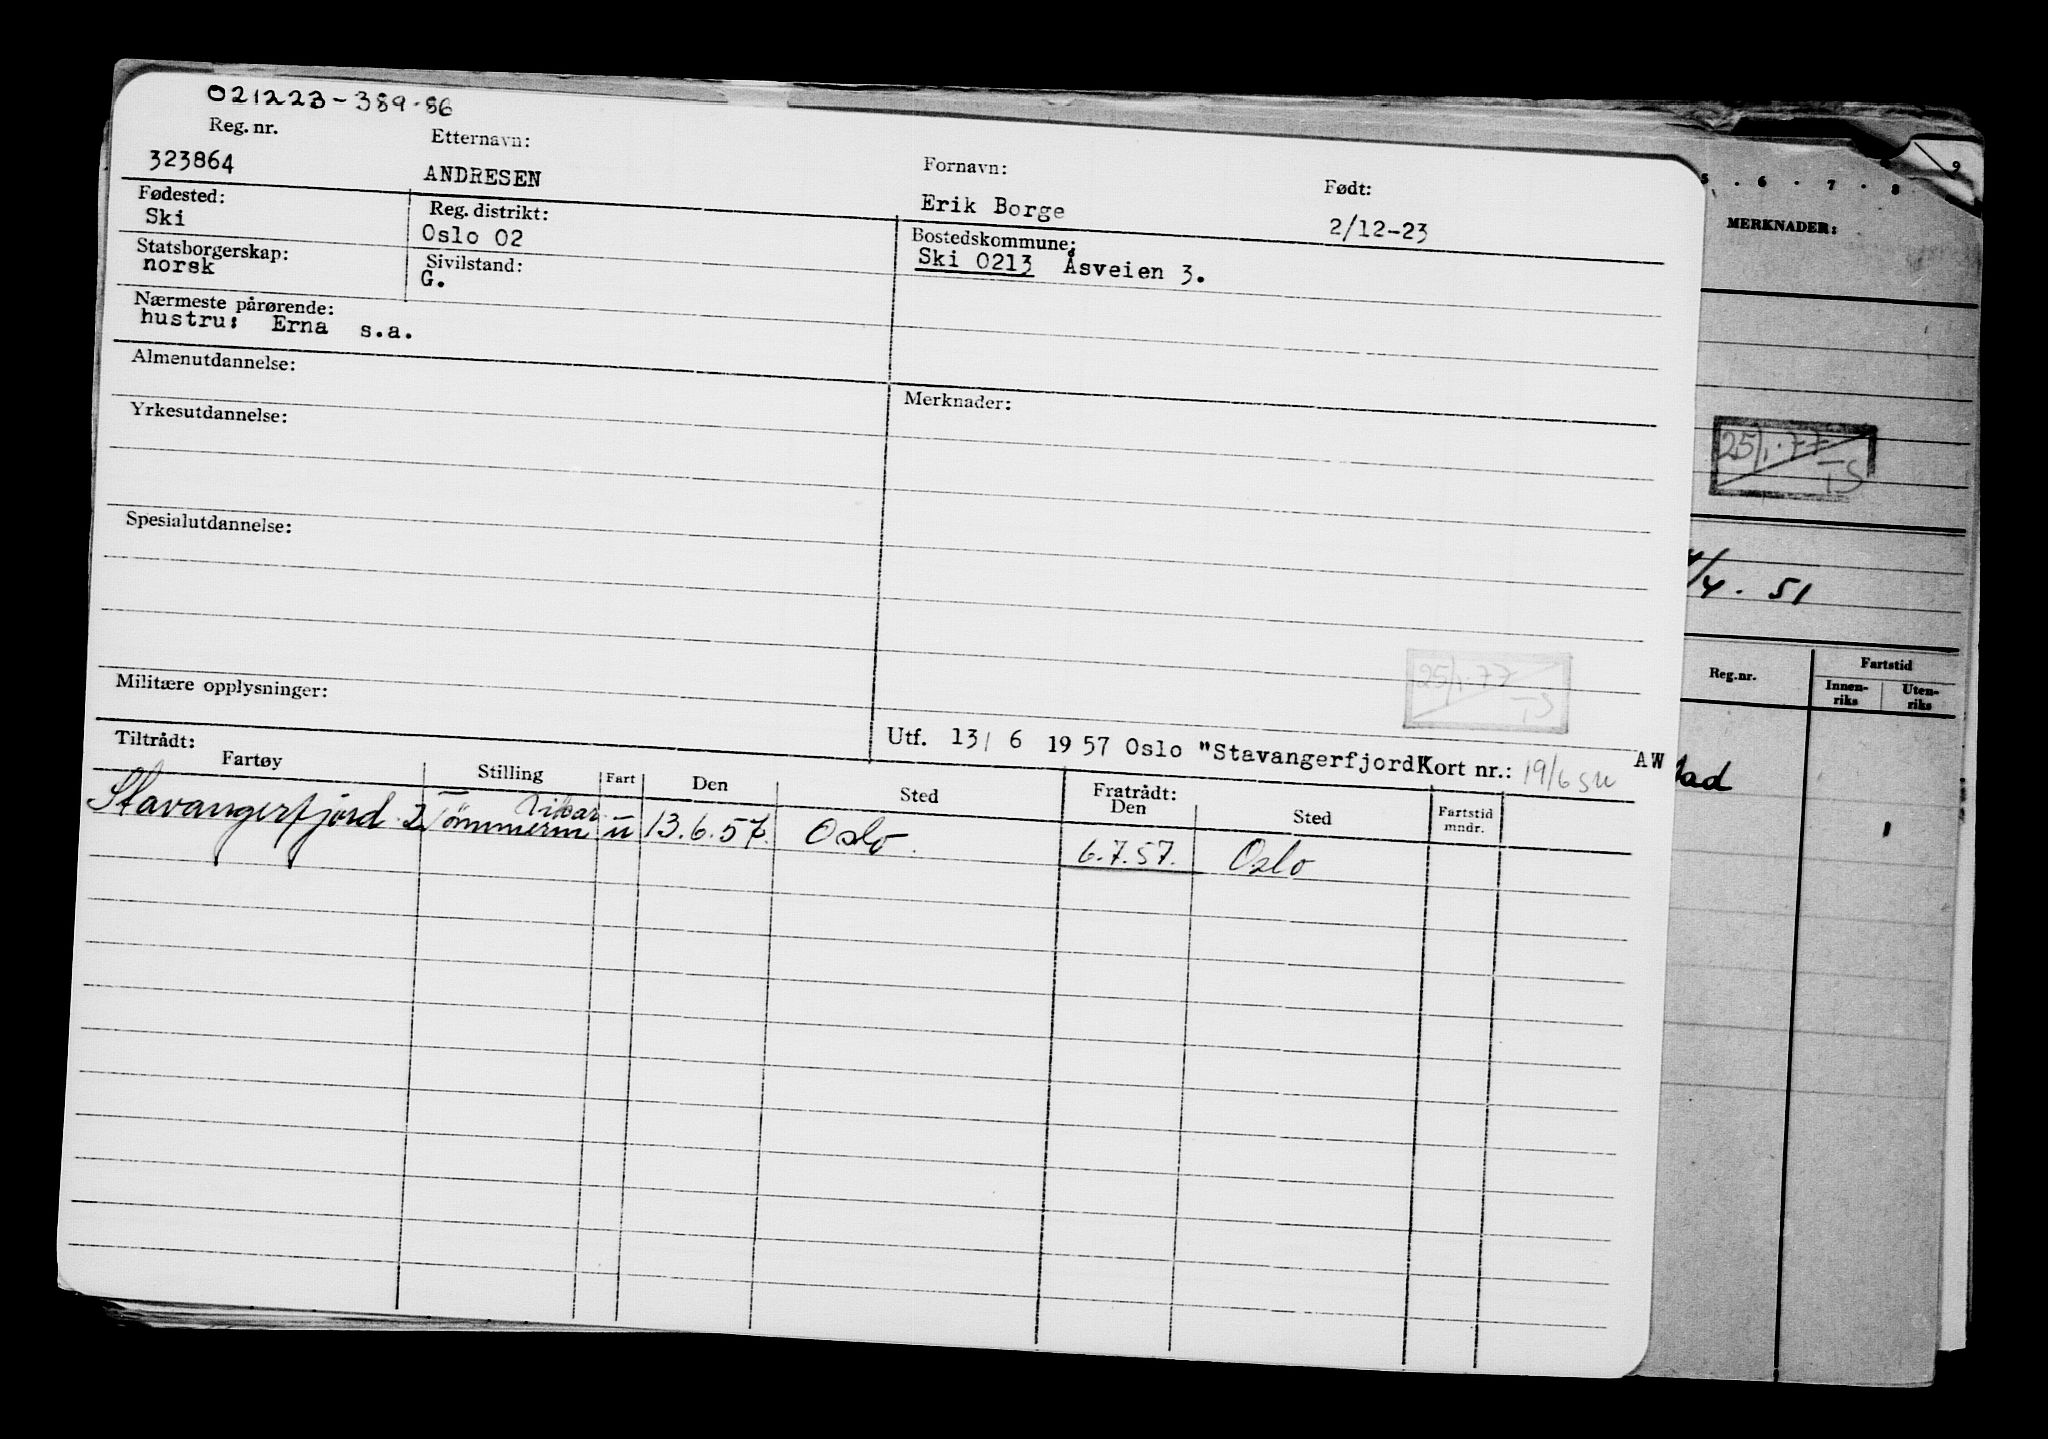 021223-389.86
Reg. nr. Etternavn: Fornavn: Født:
323864 ANDRESEN Erik Borge 2/12-23
Fødested: Reg. distrikt: Bostedskommune:
Ski Oslo 02 Ski 0213 Åsveien 3.
Statsborgerskap: Sivilstand:
norsk G.
Nærmeste pårørende:
hustru: Erna s.a.
Almenutdannelse: Merknader:
Yrkesutdannelse:
Spesialutdannelse:
25/1.77
TS
Militære opplysninger:
Utf. 13/ 6 1957 Oslo "Stavangerfjord" Kort nr.: 19/6 AW
Tiltrådt: Fratrådt:
Fartøy Stilling Fart Den Sted Den Sted Fartstid mndr.
vikar
Stavangerfjord. 2 Tömmerm u 13.6.57. Oslo. 6.7.57. Oslo
5 . 6 . 7 . 8 9
MERKNADER:
25/1.77
TS
/4. 51
Reg.nr. Fartstid
Innen-riks Uten-riks